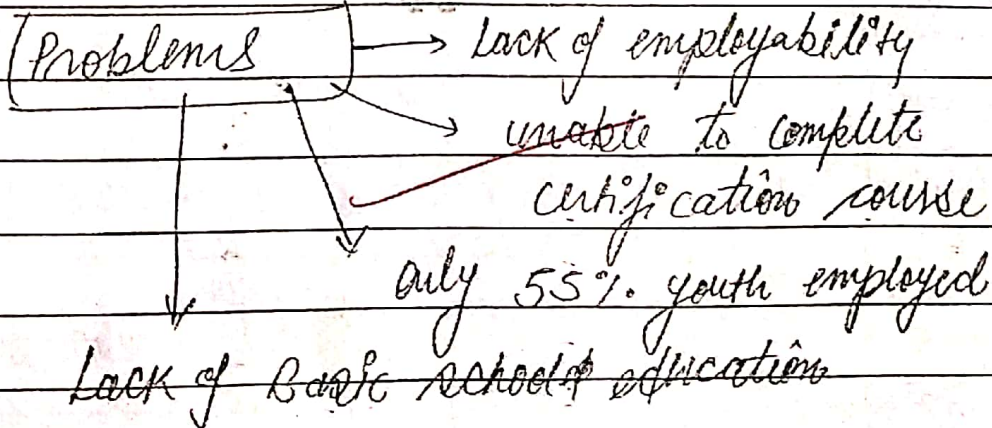 Problems → Lack of employability
unable to complete
certification course
only 55% youth employed
Lack of Basic school education